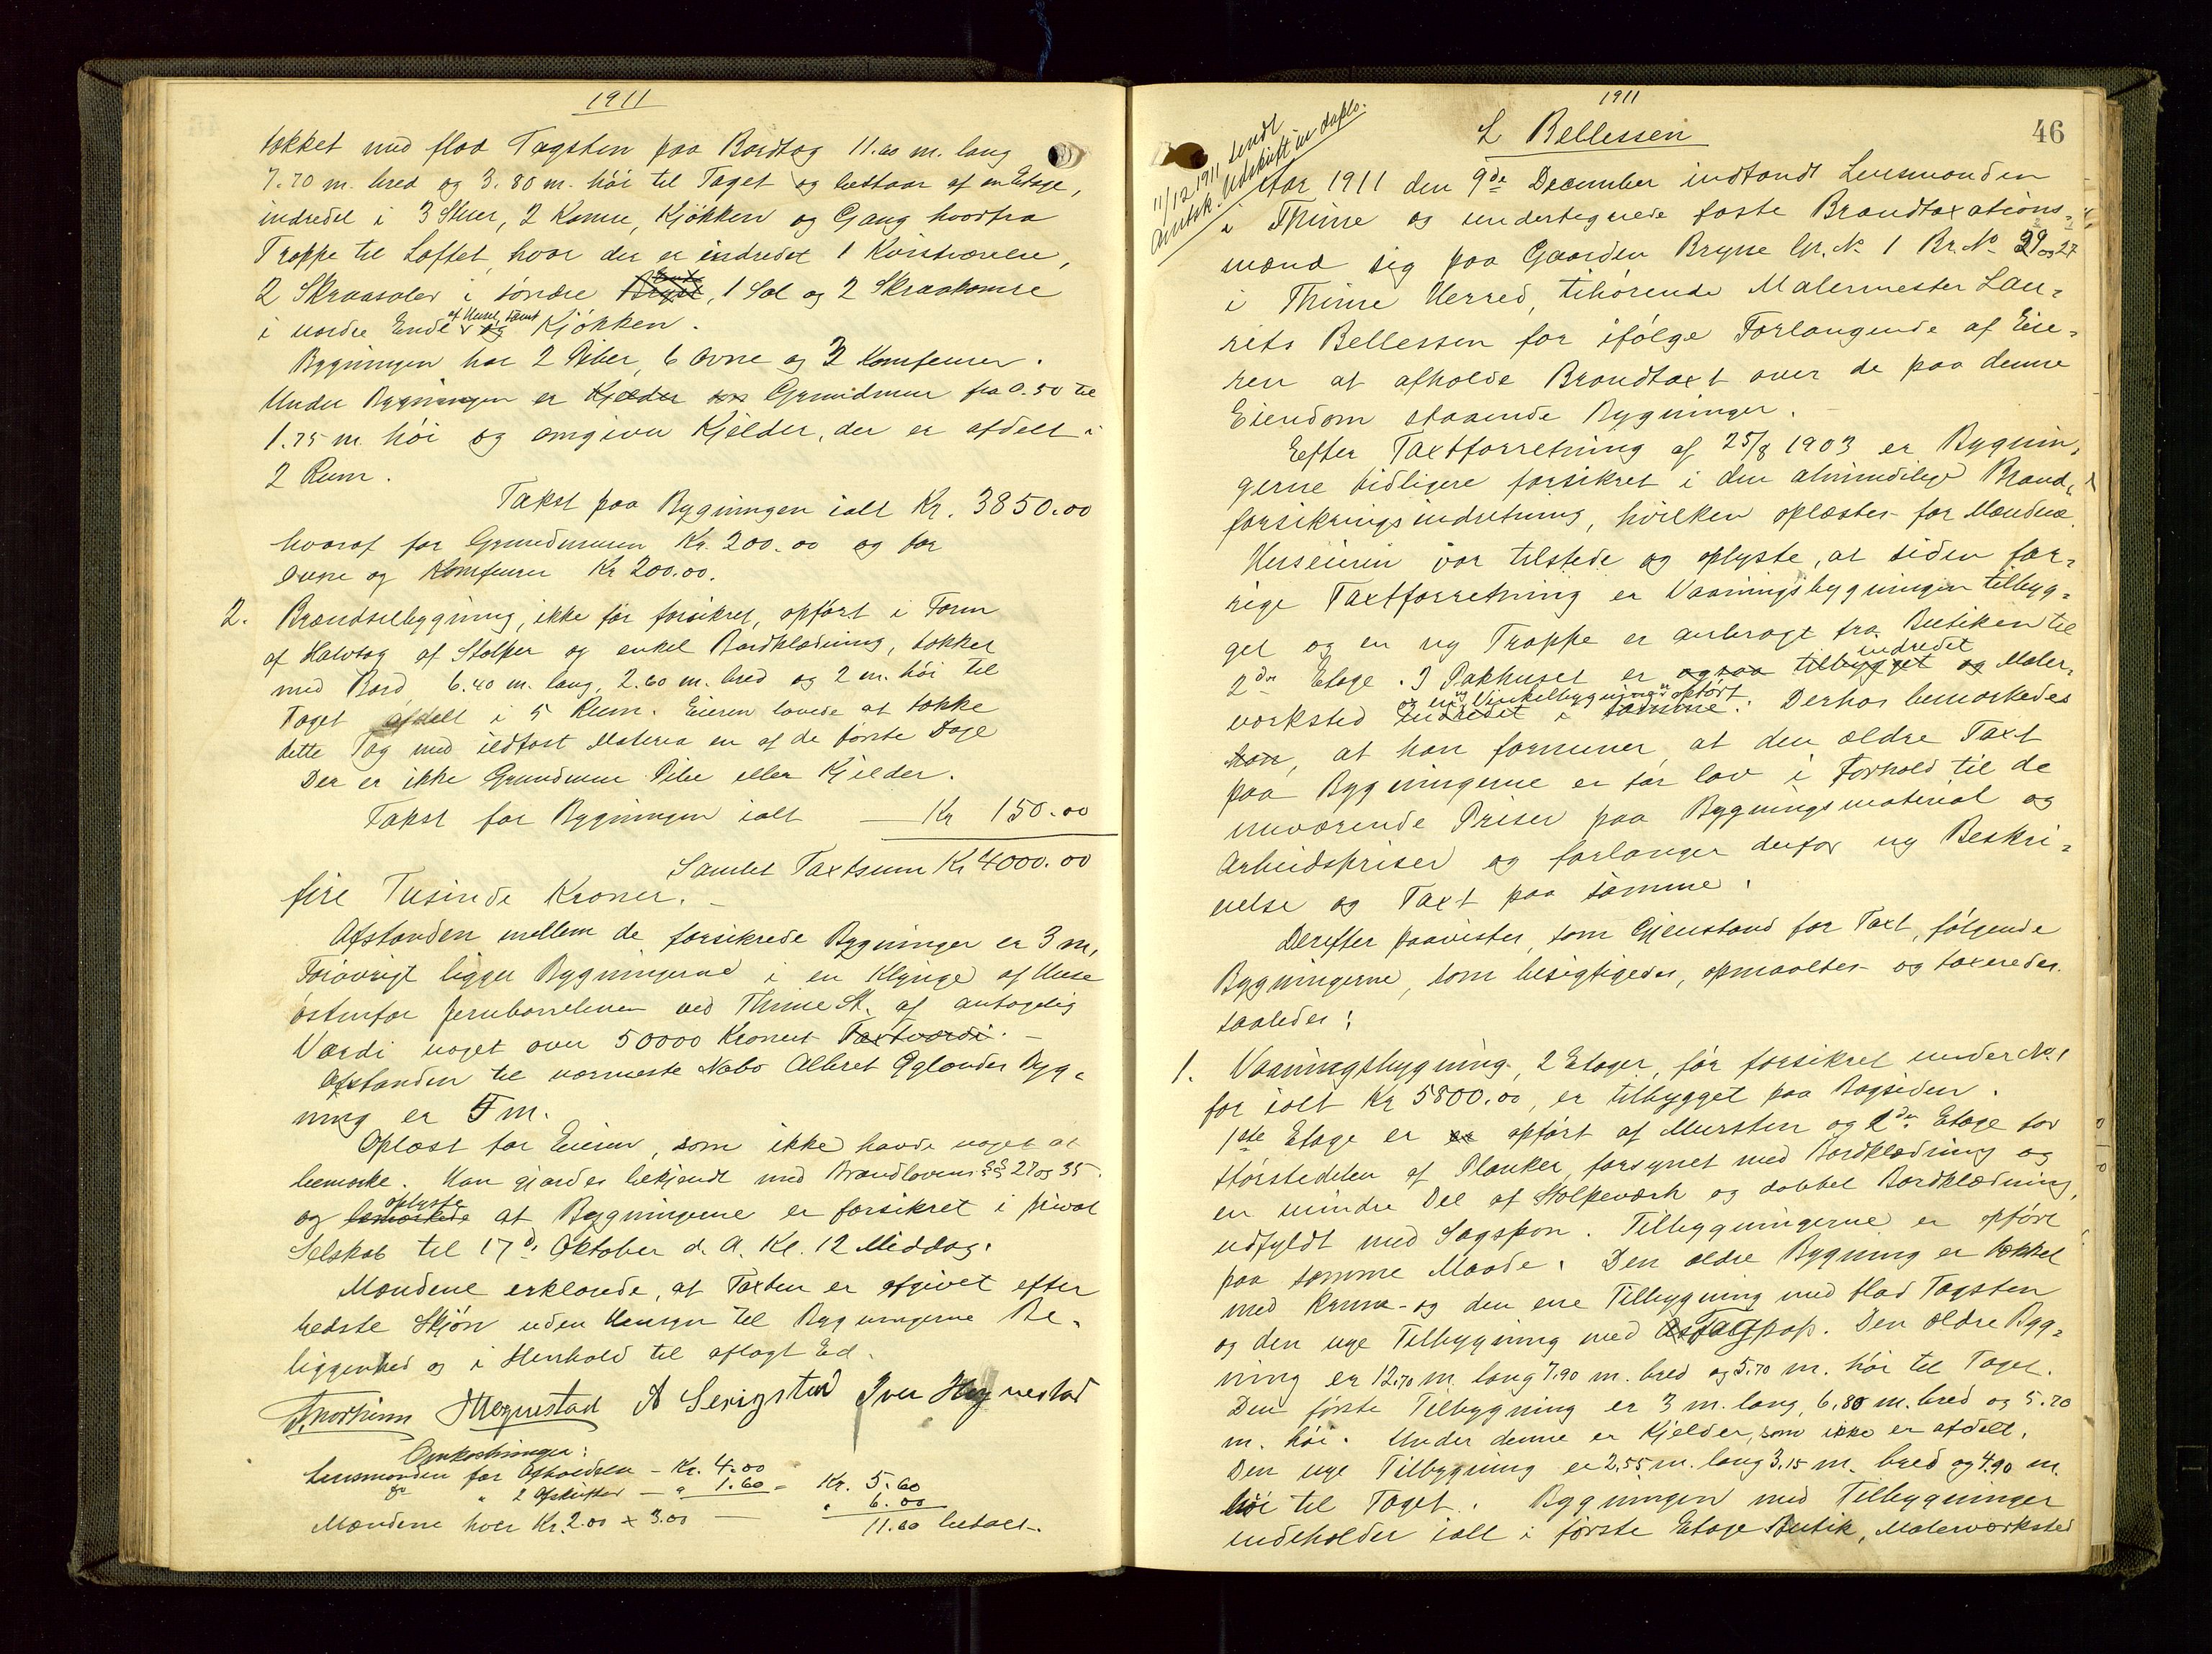 1911
tækket med flad Tagsten paa Bordtag 11.60 m. lang
7.70 m. bred og 3.80 m. höi til Taget og bestaar af en Etage,
indredet i 3 Stuer, 2 Kamre, Kjökken og Gang hvorfra
Trappe til Loftet, hvor der er indredet 1 Kvistværelse,
2 Skraasaler i söndre Ende, 1 Sal og 2 Skraakamre
i nordre Ende af Huset, samt Kjökken.
Bygningen har 2 Piber, 6 Ovne og 2 Komfeurer.
Under Bygningen er Kjælder Grundmur fra 0.50 til
1.75 m. höi og omgiver Kjelder, der er afdelt i
2 Rum.
Takst paa Bygningen ialt Kr. 3850.00
hvoraf for Grundmuren Kr. 200.00 og for
Ovne og Komfeurer Kr 200.00.
2. Brændselbygning, ikke för forsikret, opfört i Form
af Halvtag af Stolper og enkel Bordklædning, tækket
med Bord 6.40 m. lang, 2.60 m. bred og 2 m. höi til
Taget afdelt i 5 Rum. Eieren lovede at tække
dette Tag med ildfast Materia en af de förste Dage
Der er ikke Grundmur Pibe eller Kjelder.
Takst for Bygningen ialt — Kr 150.00
Samlet Taxtsum Kr 4000.00
fire Tusinde Kroner. –
Afstanden mellem de forsikrede Bygninger er 3 m,
Foiövrigt ligger Bygningerne i en Klynge af Huse
östenfor Jernbanelinien ved Thime St. af antagelig
Værdi noget over 50000 Kroner Taxtværdi. –
Afstanden til nærmeste Nabo Albret Öglænder Byg-
ning er 5 m.
Oplæst for Eieren, som ikke havde noget at
bemærke. Han gjordes bekjendt med Brandlovens §§ 27 og 35
og bemærkede oplyste at Bygningerne er forsikret i privat
Selskab til 17d. Oktober d. A. Kl. 12 Middag.
Mændene erklærede, at Taxten er afgivet efter
bedste Skjön uden Hensyn til Bygningerne Be-
liggenhed og i Henhold til aflagt Ed.
Omkostninger:
Lensmanden for Afholdelse – Kr. 4.00
do " 2 Afskrifter – " 1.60 = Kr. 5.60
Mændene hver Kr. 2.00 x 3.00 — " 6.00
11.60 betalt.
1911
46
L Bellessen
11/12 1911 sendt
Aar 1911 den 9de December indfandt Lensmanden
i Thime og undertegnede faste Brandtaxations-
mænd sig paa Gaarden Bryne Gr. No 1 Br. No 29 og 27
i Thime Herred, tilhörende Malermester Lau-
rits Bellessen for ifölge Forlangende af Eie-
ren at afholde Brandtaxt over de paa denne
Eiendom staaende Bygninger. –
Efter Taxtforretning af 25/8 1903 er Bygnin-
gerne tidligere forsikret i den almindelige Brand-
forsikringsindretning, hvilken oplæstes for Mændene.
Huseieren var tilstede og oplyste, at siden for-
rige Taxtforretning er Vaaningsbygningen tilbyg-
get og en ny Trappe er anbragt fra Butiken til
2den Etage. I Pakhuset er ogsaa tilbygget og indredet Maler-
værksted indredet i samme og en ny Vinkelbygning er opfört. Derhos bemærkedes
han, at han formener, at den ældre Taxt
paa Bygningerne er for lav i Forhold til de
nuværende Priser paa Bygningsmaterial og
Arbeidspriser og forlanger derfor ny Beskri-
velse og Taxt paa samme.
Derefter paavistes, som Gjenstand for Taxt, fölgende
Bygningerne, som besigtigedes, opmaaltes og taxeredes
saaledes:
1. Vaaningsbygning, 2 Etager, för forsikret under No 1
for ialt Kr 5800.00, er tilbygget paa Bagsiden.
1ste Etage er opfört af Mursten og 2den Etage for
störstedelen af Planker, forsynet med Bordklædning og
en mindre Del af Stolpeværk og dobbel Bordklædning,
udfyldt med Sagspon. Tilbygningerne er opfört
paa samme Maade. Den ældre Bygning er tækket
med Krum- og den ene Tilbygning med flad Tagsten
og den nye Tilbygning med Tagpap. Den ældre Byg-
ning er 12.70 m. lang 7.90 m. bred og 5.70 m. höi til Taget.
Den förste Tilbygning er 3 m. lang, 6.80 m. bred og 5.20
m. höi. Under denne er Kjelder, som ikke er afdelt.
Den nye Tilbygning er 2.55 m. lang 3.15 m. bred og 4.90 m.
höi til Taget. Bygningen med Tilbygninger
indeholder ialt i förste Etage Butik, Malerværksted